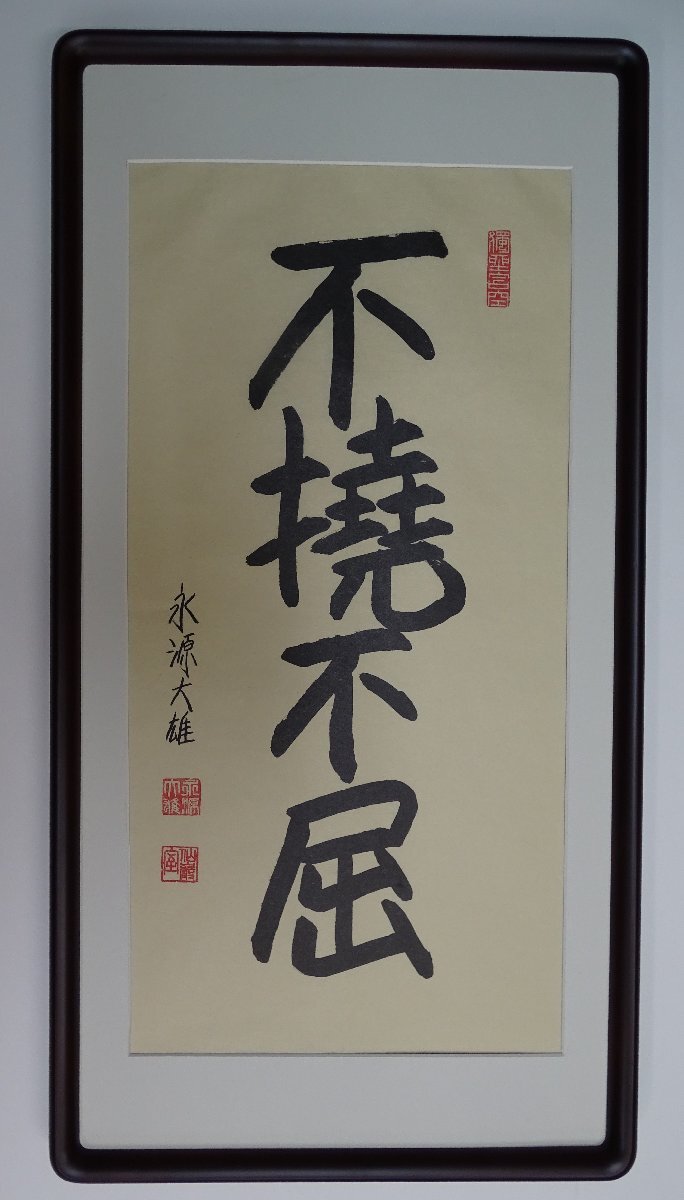 不撓不屈
永源大雄